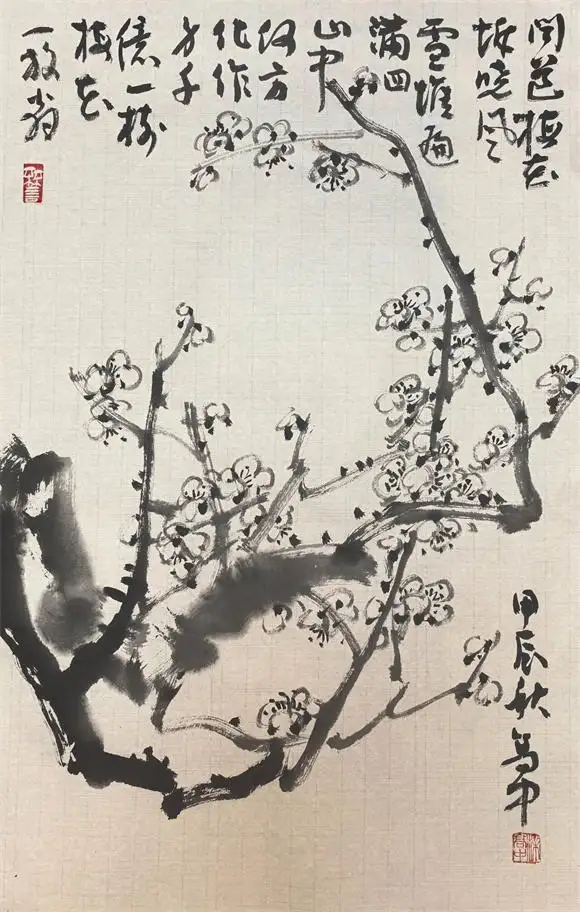 闻道梅花
坼晓风
雪堆遍
满四
山中
何方
化作
身千
億一樹
梅花
一放翁
甲辰秋